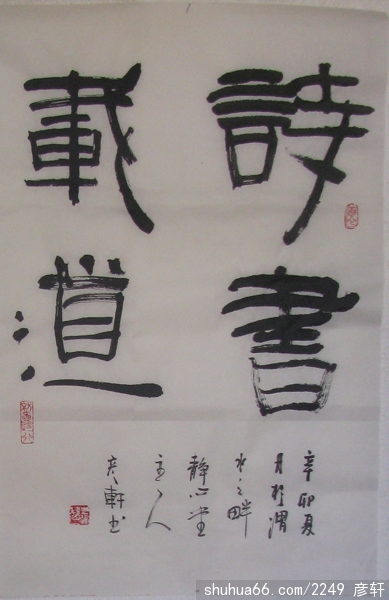 詩書
載道
辛卯夏
月於渭
水之畔
静心堂
主人
彦軒书
shuhua66.com/2249 彦轩